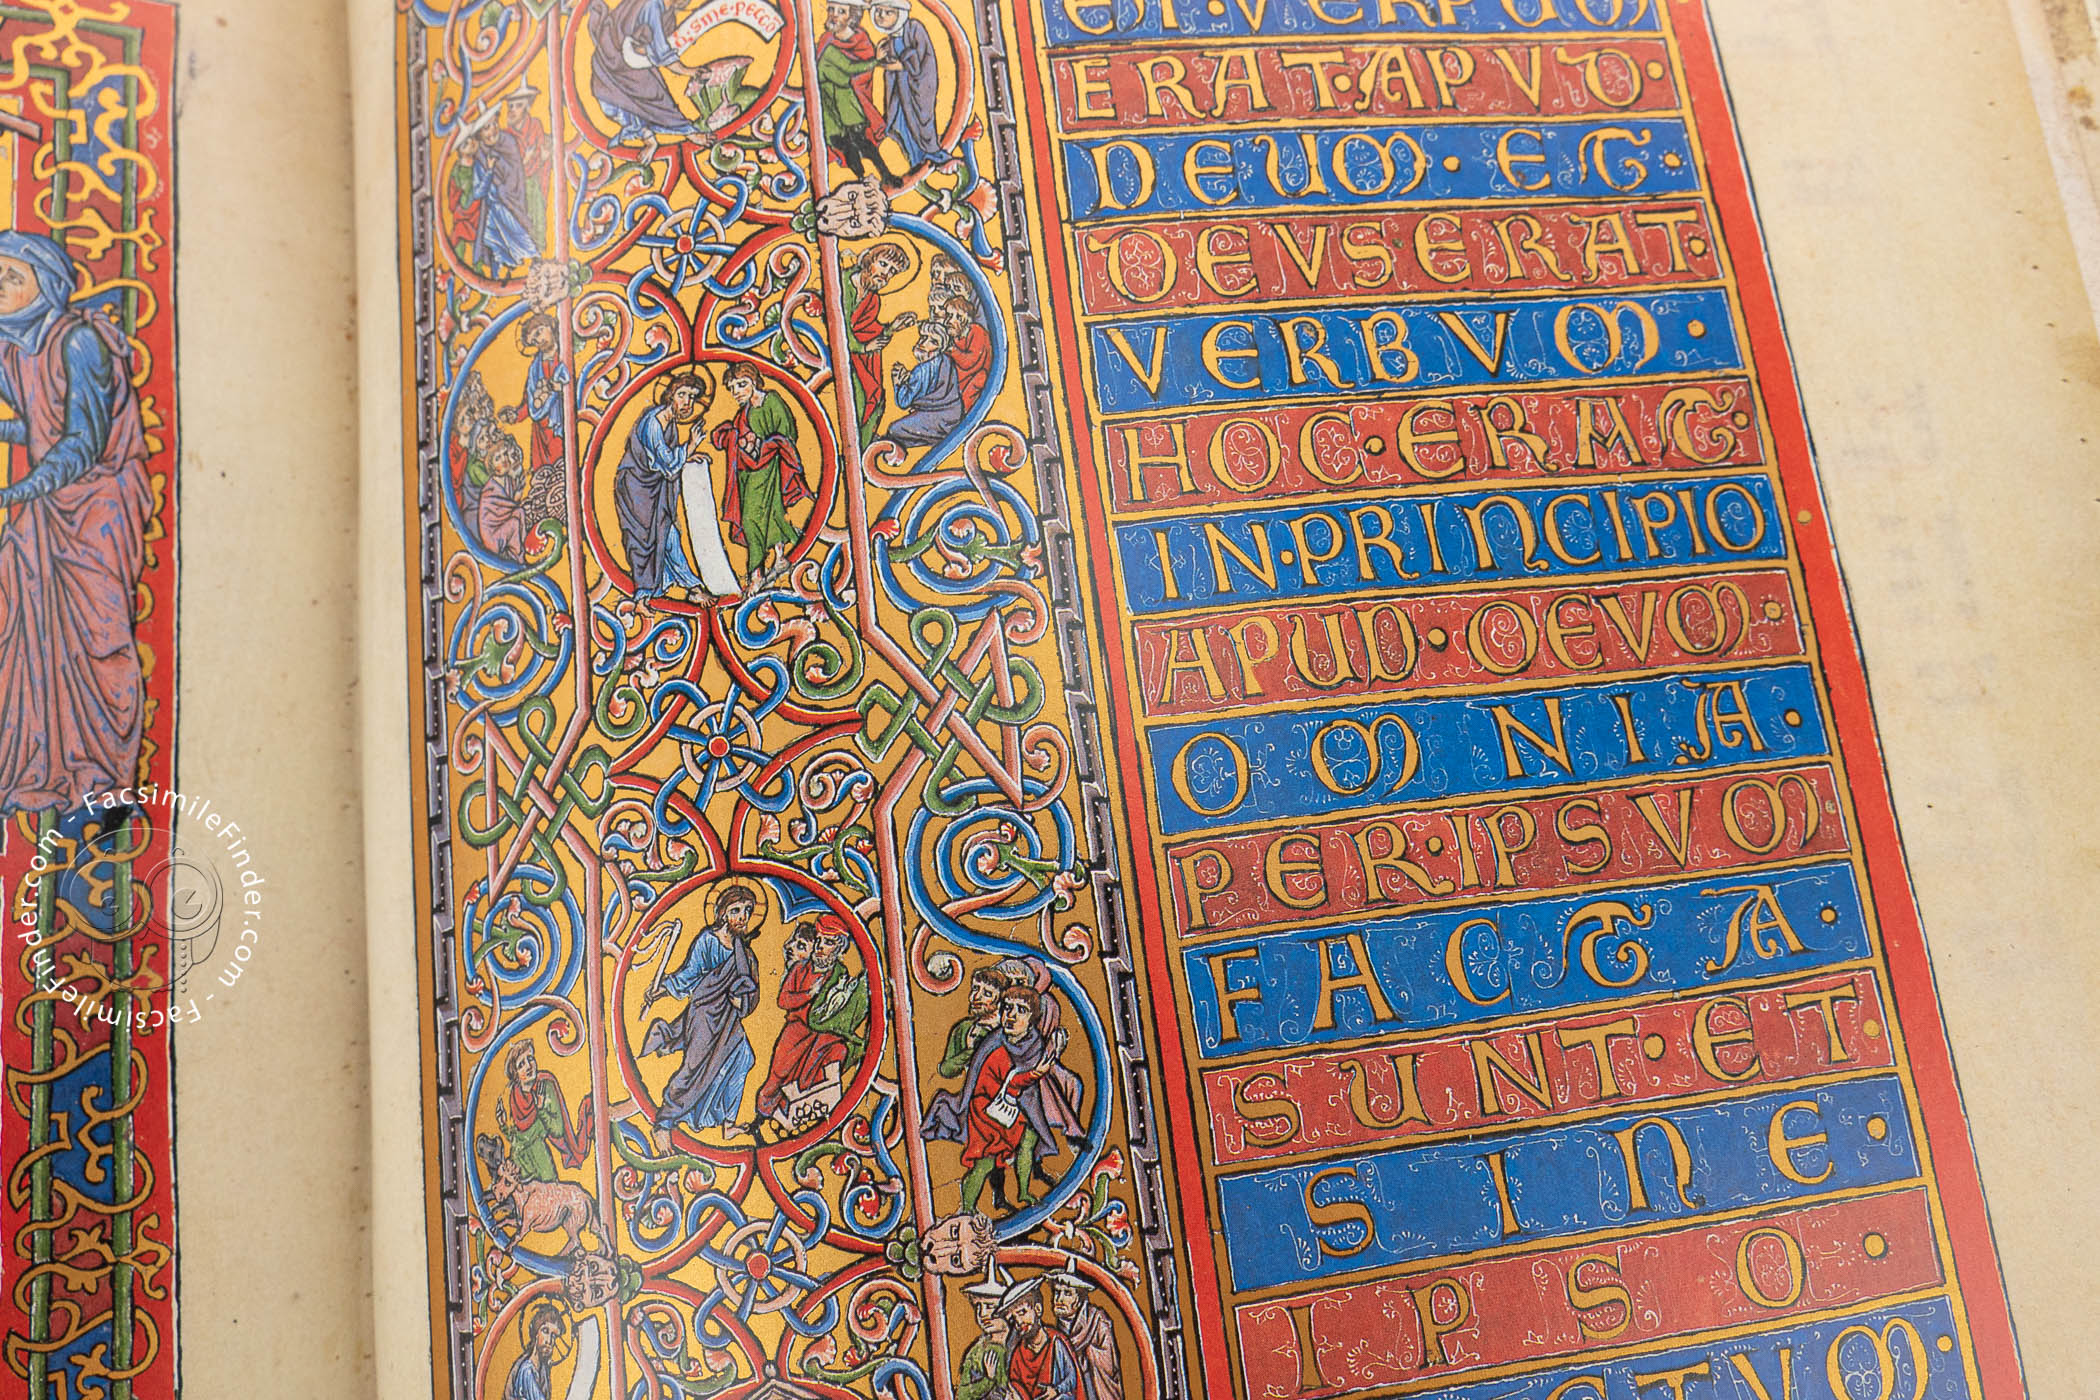 Q̄. SINE. PECCO
ET. VERBUM
ERAT. APVD.
DEUM. ET.
DEVS ERAT.
VERBVM.
HOC. ERAT.
IN. PRINCIPIO
APUD. DEVM.
OMNIA.
PER. IPSVM.
FACTA.
SUNT. ET.
SINE.
IPSO.
FacsimileFinder.com - FacsimileFinder.com -